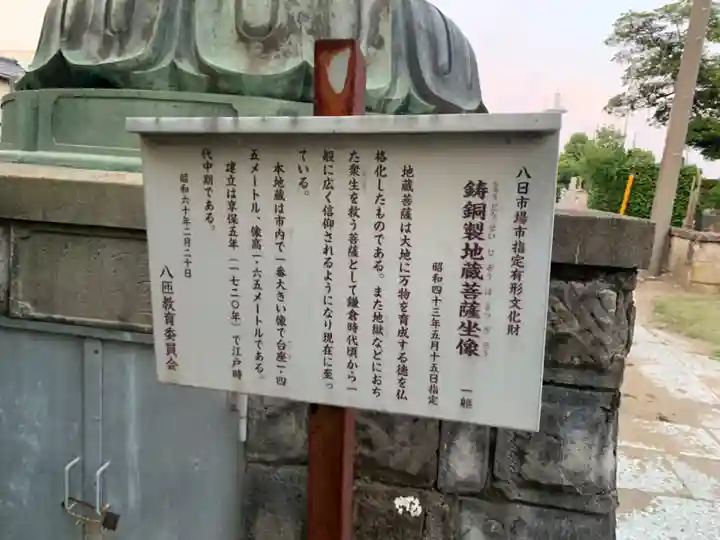 八日市場市指定有形文化財
鋳銅製地蔵菩薩坐像 一軀
ちゅうどうせいじぞうぼさつざぞう
昭和四十三年五月十五日指定
地蔵菩薩は大地に万物を育成する徳を仏
格化したものである。また地獄などにおち
た衆生を救う菩薩として鎌倉時代頃から一
般に広く信仰されるようになり現在に至っ
ている。
本地蔵は市内で一番大きい像で台座一・四
五メートル、像高一・六五メートルである。
建立は享保五年(一七二〇年)で江戸時
代中期である。
昭和六十年二月二十日
八匝教育委員会